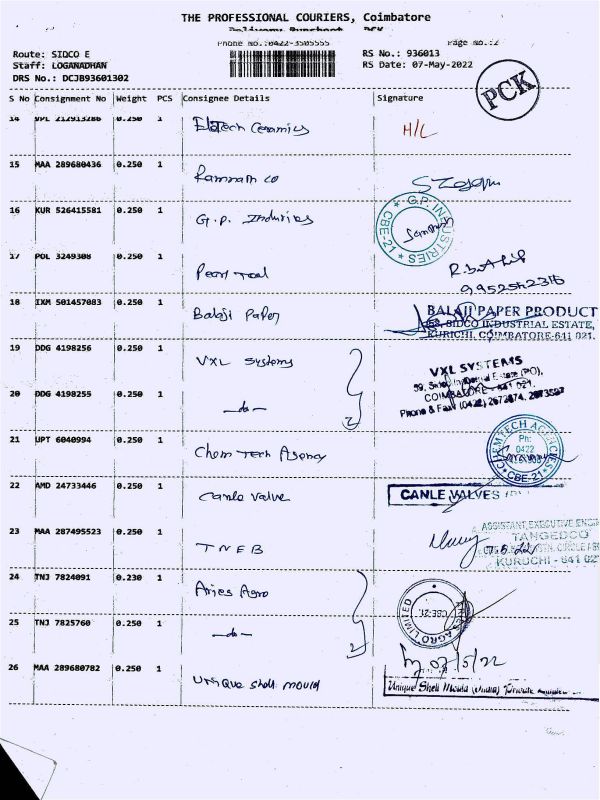 THE PROFESSIONAL COURIERS, Coimbatore
Delivery Runsheet - PCK
Phone No.:0422-3505555 Page No.:2
Route: SIDCO E RS No.: 936013
Staff: LOGANADHAN RS Date: 07-May-2022
DRS No.: DCJB93601302
PCK
S No Consignment No Weight PCS Consignee Details Signature
14 VPL 212913286 0.250 1 Ceramics H/L
15 MAA 289680436 0.250 1 Ramnath co
16 KUR 526415581 0.250 1 G.P. Industries G.P. INDUSTRIES CBE-21 Santhosh
17 POL 3249308 0.250 1 Pearl Tool
18 IXM 501457083 0.250 1 Balaji Paper BALAJI PAPER PRODUCT
SIDCO INDUSTRIAL ESTATE,
KURICHI, COIMBATORE-641 021.
19 DDG 4198256 0.250 1 VXL Systems VXL SYSTEMS
59, Sidco Industrial Estate (PO),
COIMBATORE - 641 021.
20 DDG 4198255 0.250 1 -do- 2 Phone & Fax (0422) 2672874, 2673597
21 UPT 6040994 0.250 1 Chem Tech Agency CHEMTECH AGENCIES Ph: 0422 CBE-21
22 AMD 24733446 0.250 1 Canle Valve CANLE VALVES
23 MAA 287495523 0.250 1 TNEB ASSISTANT EXECUTIVE ENGI
TANGEDCO
KURUCHI - 641 02
24 TNJ 7824091 0.230 1 Aries Agro ARIES AGRO LIMITED CBE-21
25 TNJ 7825760 0.250 1 -do- 2
07/5/22
26 MAA 289680782 0.250 1 Unique Shell Mould Unique Shell Moulds (India) Private